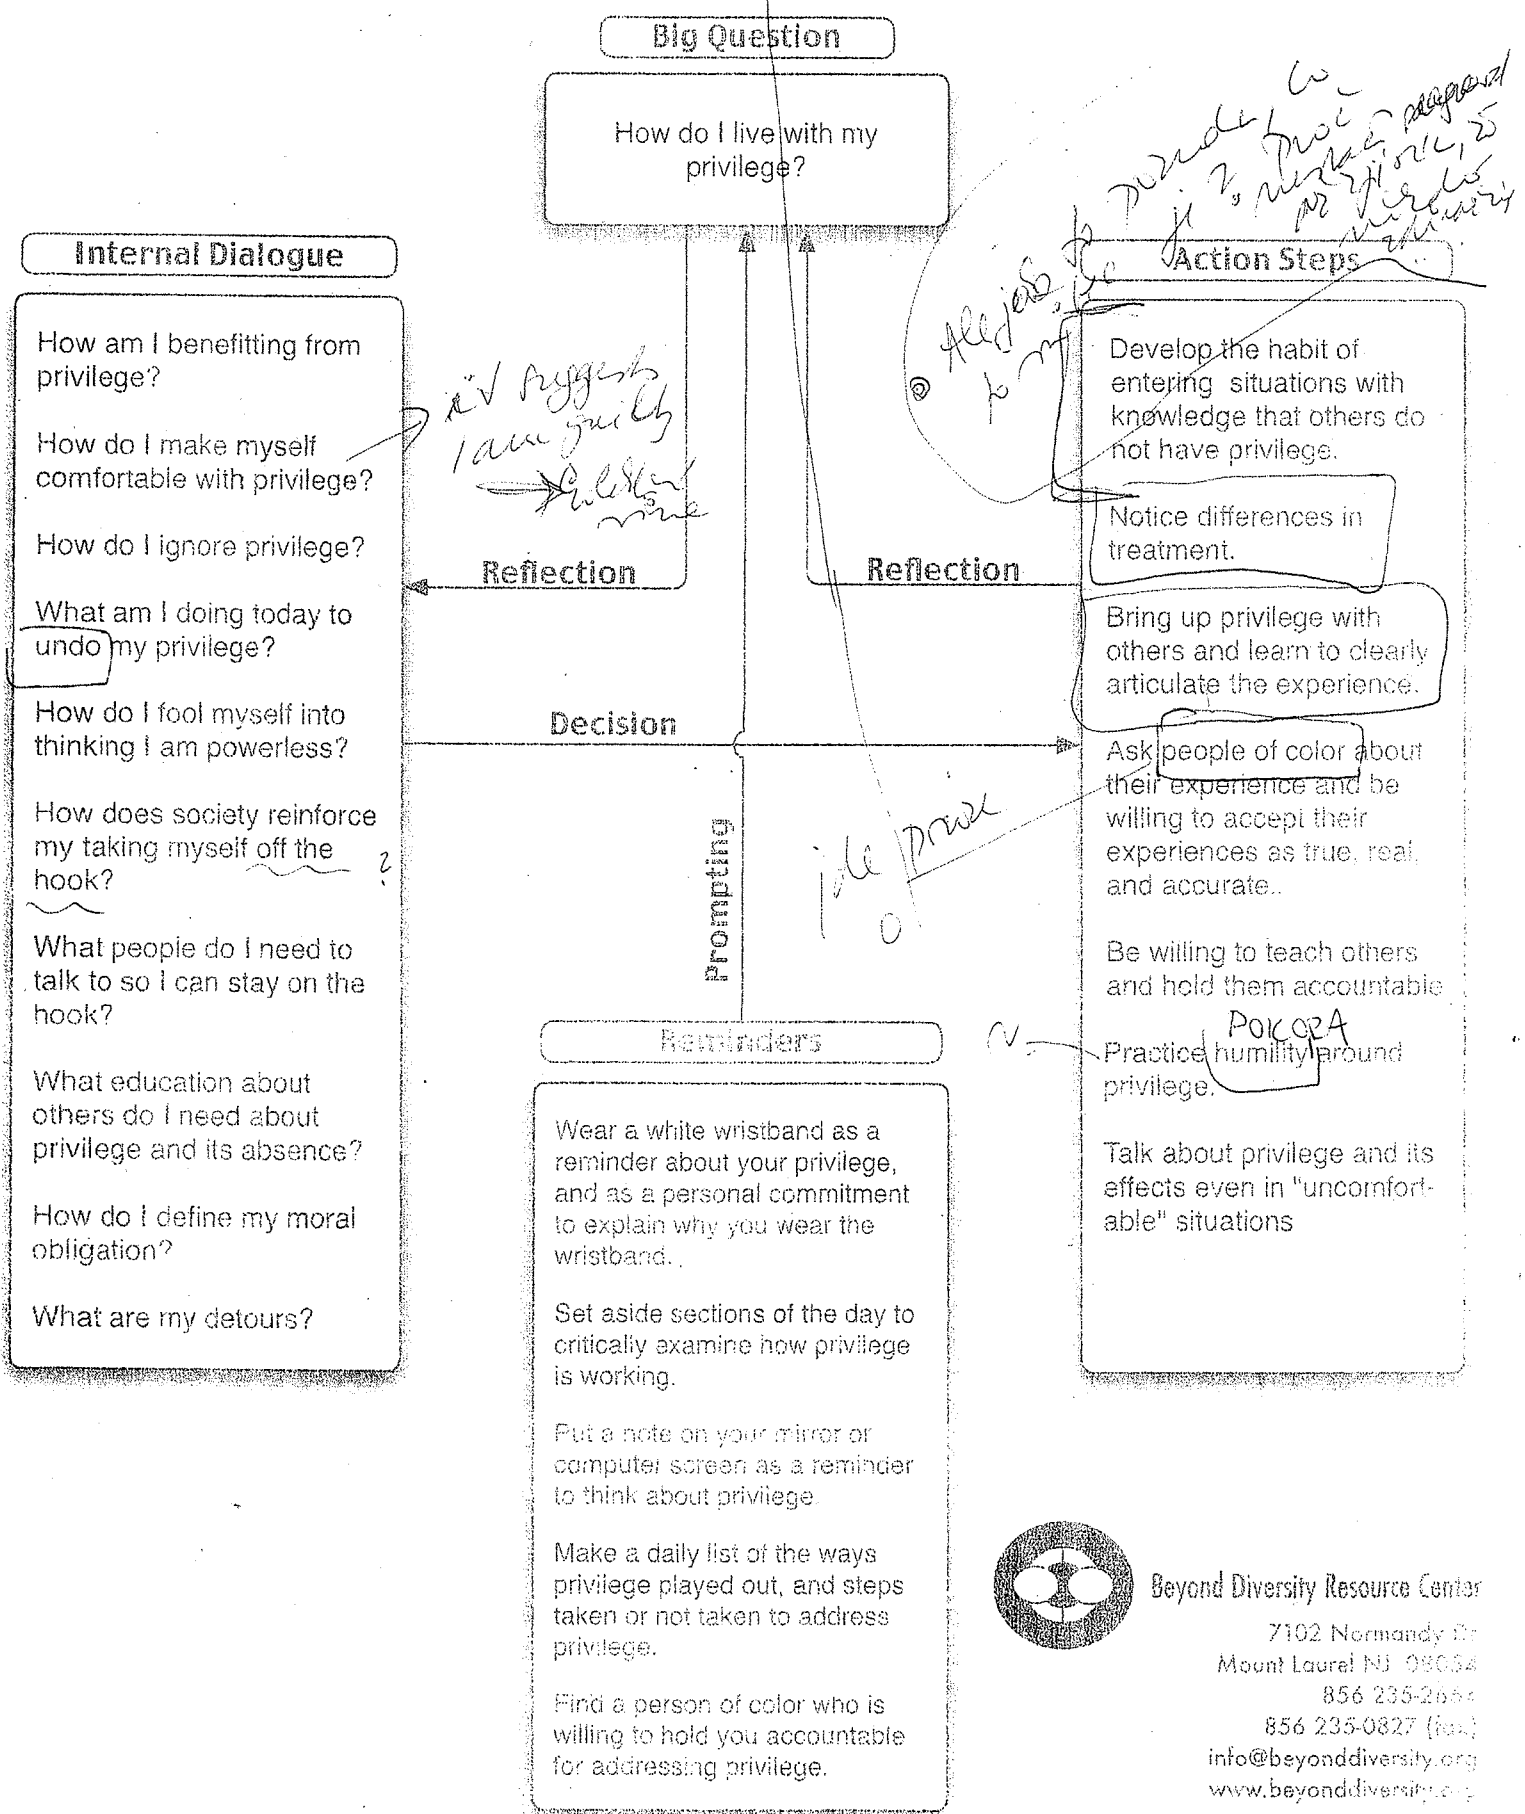 Big Question
How do I live with my
privilege?
Internal Dialogue
How am I benefitting from
privilege?
How do I make myself
comfortable with privilege?
How do I ignore privilege?
What am I doing today to
undo my privilege?
How do I fool myself into
thinking I am powerless?
How does society reinforce
my taking myself off the
hook?
?
What people do I need to
talk to so I can stay on the
hook?
What education about
others do I need about
privilege and its absence?
How do I define my moral
obligation?
What are my detours?
it suggests
I am guilty
Reflection
Reflection
Decision
Prompting
Action Steps
Develop the habit of
entering situations with
knowledge that others do
not have privilege.
Notice differences in
treatment.
Bring up privilege with
others and learn to clearly
articulate the experience.
Ask people of color about
their experience and be
willing to accept their
experiences as true, real,
and accurate..
Be willing to teach others
and hold them accountable
POKORA
Practice humility around
privilege.
Talk about privilege and its
effects even in "uncomfort-
able" situations
Reminders
Wear a white wristband as a
reminder about your privilege,
and as a personal commitment
to explain why you wear the
wristband.
Set aside sections of the day to
critically examine how privilege
is working.
Put a note on your mirror or
computer screen as a reminder
to think about privilege.
Make a daily list of the ways
privilege played out, and steps
taken or not taken to address
privilege.
Find a person of color who is
willing to hold you accountable
for addressing privilege.
Beyond Diversity Resource Center
7102 Normandy Dr
Mount Laurel NJ 08054
856 235-
856 235-0827 (fax)
info@beyonddiversity.org
www.beyonddiversity.org